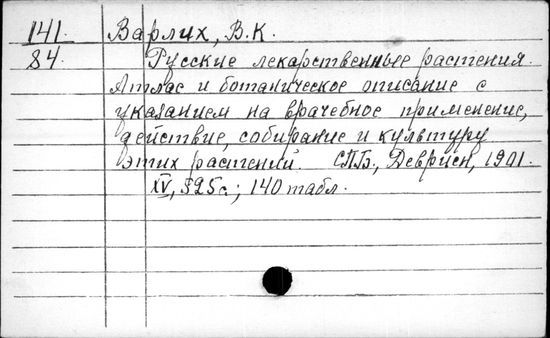 141. Варлих, В.К.
84. Русские лекарственные растения.
Атлас и ботаническое описание с
указанием на врачебное применение,
действие, собирание и культуру
этих растений. СПБ., Девриен, 1901.
XV, 525с.; 140 табл.